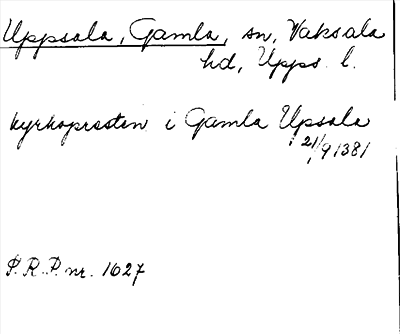 Uppsala, Gamla, sn, Vaksala
hd, Upps. l.
kyrkopresten i Gamla Upsala
21/9 1381
P. R. P. nr. 1627